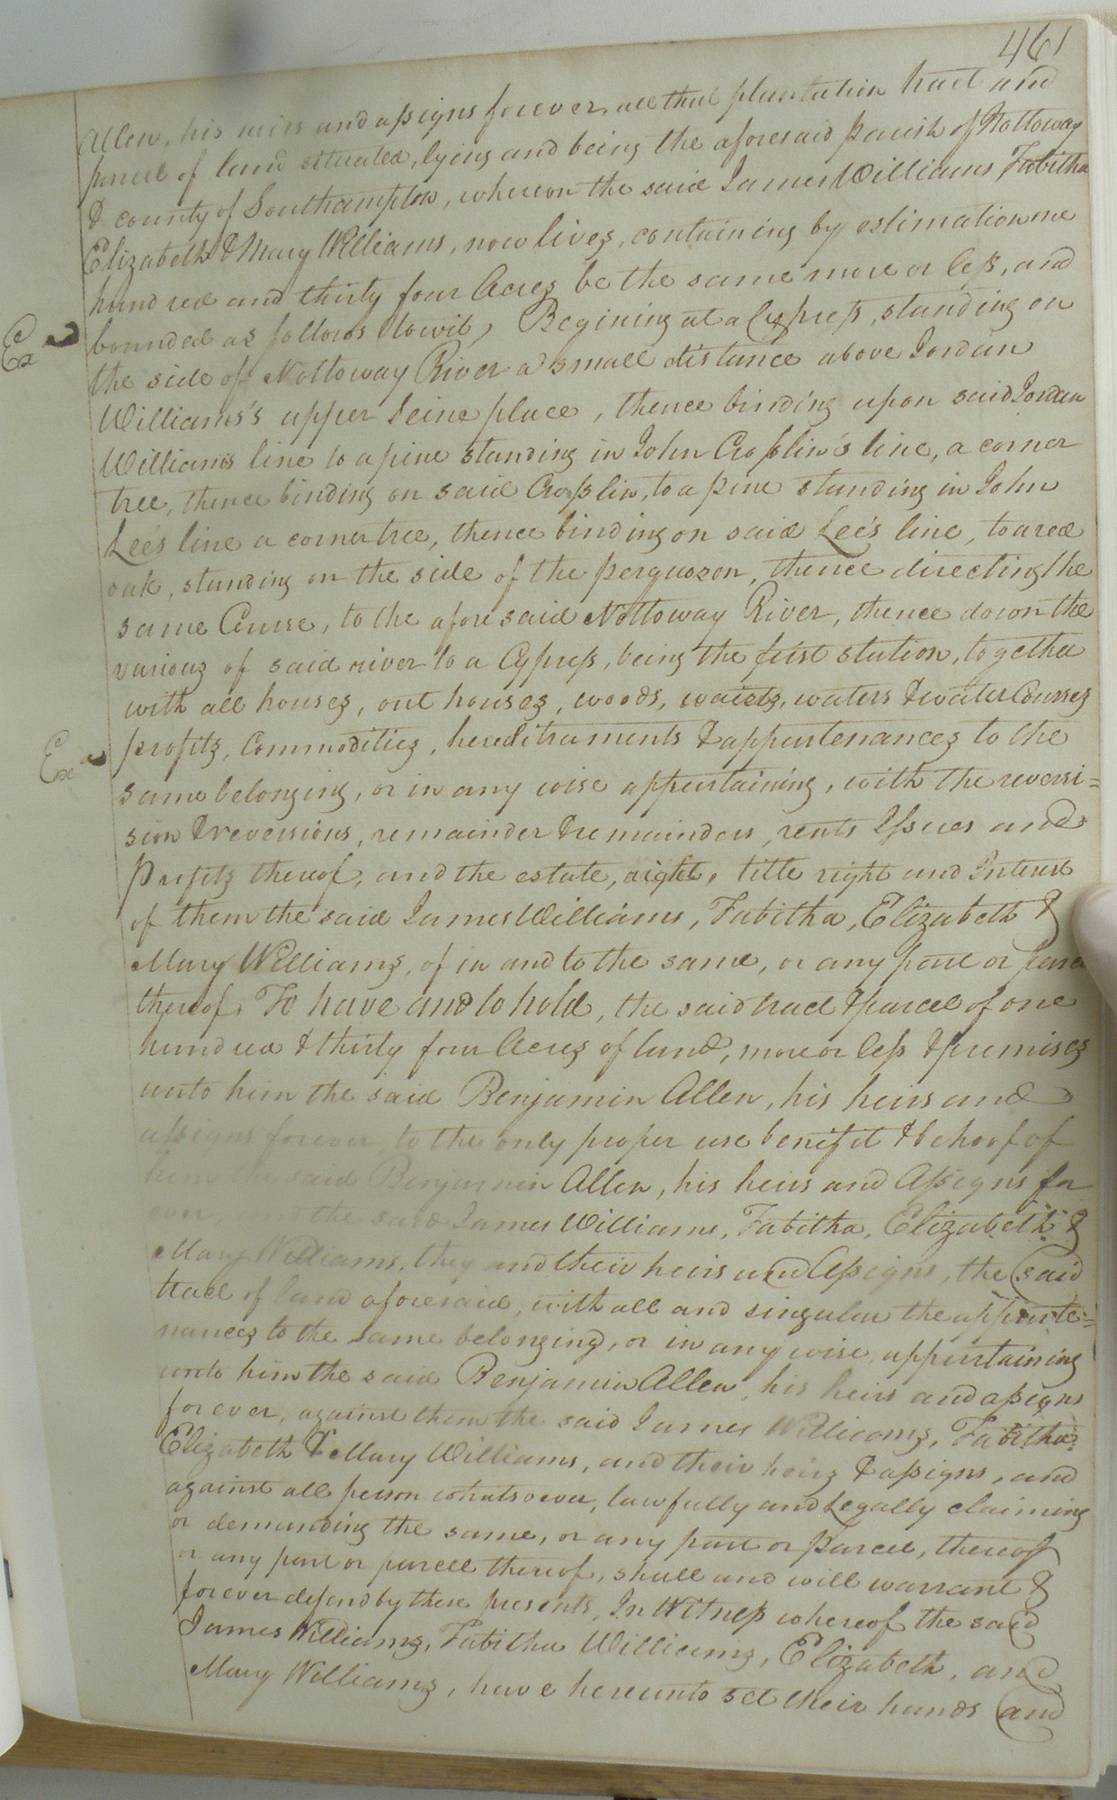 461
Allen, his heirs and assigns forever, all that plantation tract and
parcel of land situated, lying and being the aforesaid parish of Nottoway
& county of Southampton, whereon the said James Williams Tabitha
Elizabeth & Mary Williams, now lives, containing by estimation one
hundred and thirty four Acres be the same more or less, and
bounded as follows towit, Begining at a Cypress, standing on
the side of Nottoway River a small distance above Jordan
Williams's upper Seine place, thence binding upon said Jordan
Williams line to a pine standing in John Crosslin's line, a corner
tree, thence binding on said Crosslin, to a pine standing in John
Lee's line a corner tree, thence binding on said Lee's line, to a red
oak, standing on the side of the perquoson, thence directing the
same Course, to the aforesaid Nottoway River, thence down the
various of said river to a Cypress, being the first station, together
with all houses, out houses, woods, waists, waters & water Courses
profits, Commodities, hereditraments & appurtenances to the
same belonging, or in any wise appurtaining, with the reversi=
sion & reversions, remainder & remainders, rents Issues and
Profits thereof, and the estate, right, title right and Interest
of them the said James Williams, Tabitha, Elizabeth &
Mary Williams, of in and to the same, or any part or parcel
thereof, To have and to hold, the said tract & parcel of one
hundred & thirty four Acres of land, more or less & premises
unto him the said Benjamin Allen, his heirs and
assigns forever, to the only proper use benifit & behoof of
him the said Benjamin Allen, his heirs and Assigns for
ever, and the said James Williams, Tabitha, Elizabeth &
Mary Williams, they and their heirs and Assigns, the said
tract of land aforesaid, with all and singular the appurte=
nances to the same belonging, or in any wise appurtaining
unto him the said Benjamin Allen, his heirs and assigns
forever, against them the said James Williams, Tabitha,
Elizabeth & Mary Williams, and their heirs & assigns, and
against all person whatsoever, lawfully and Legally claiming
or demanding the same, or any part or parcel, thereof
or any part or parcell thereof, shall and will warrant &
forever defend by these presents, In Witness whereof the said
James Williams, Tabitha Williams, Elizabeth, and
Mary Williams, have hereunto set their hands and
Ex
Ex